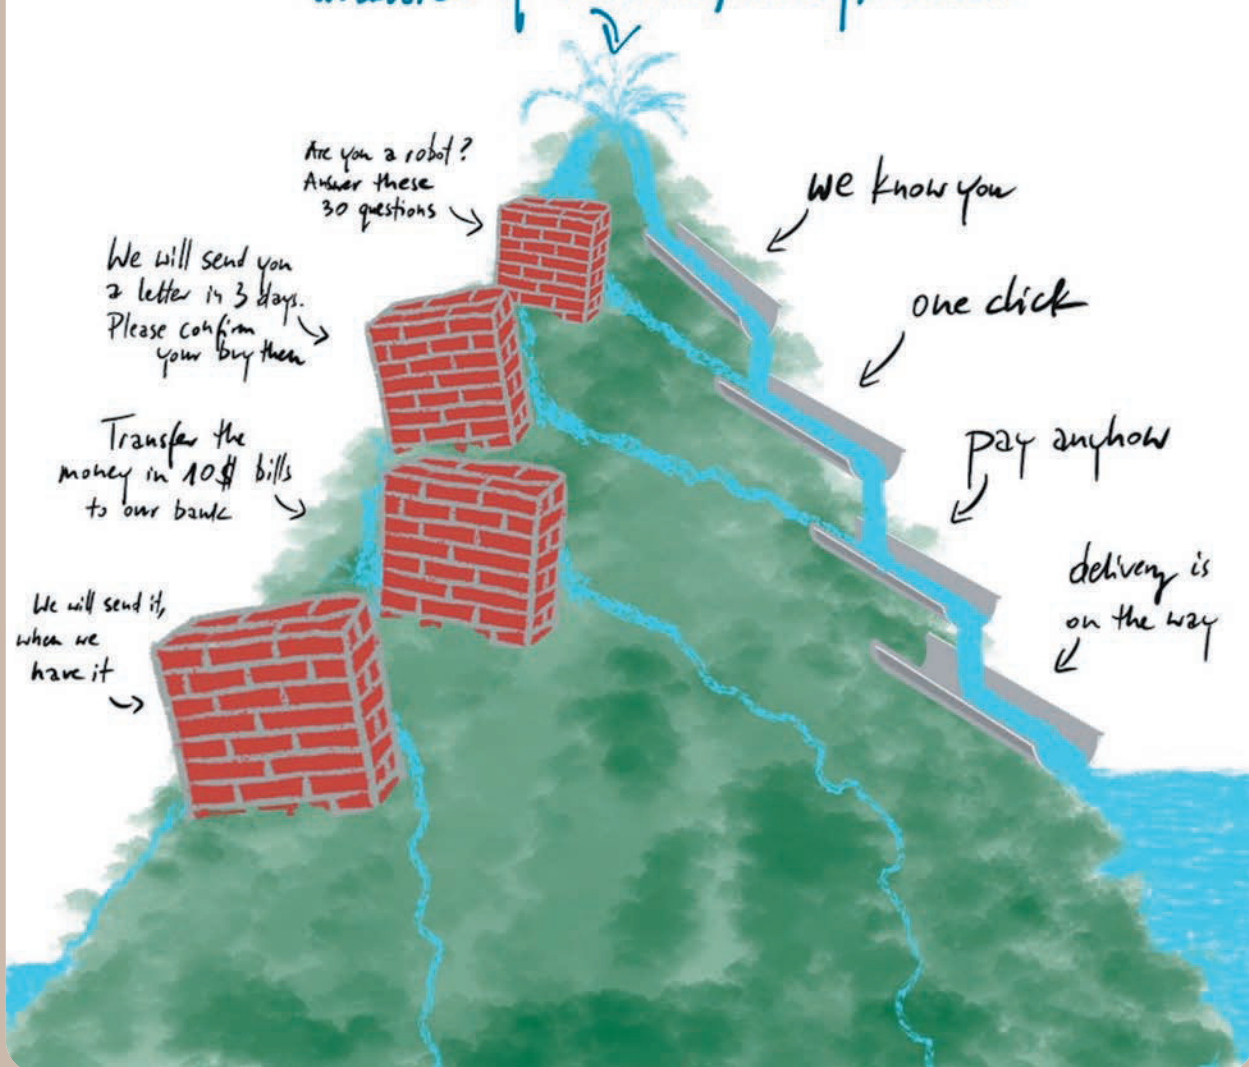 Are you a robot?
Answer these
30 questions
We will send you
a letter in 3 days.
Please confirm
your buy then
Transfer the
money in 10$ bills
to our bank
We will send it,
when we
have it
we know you
one click
pay anyhow
delivery is
on the way